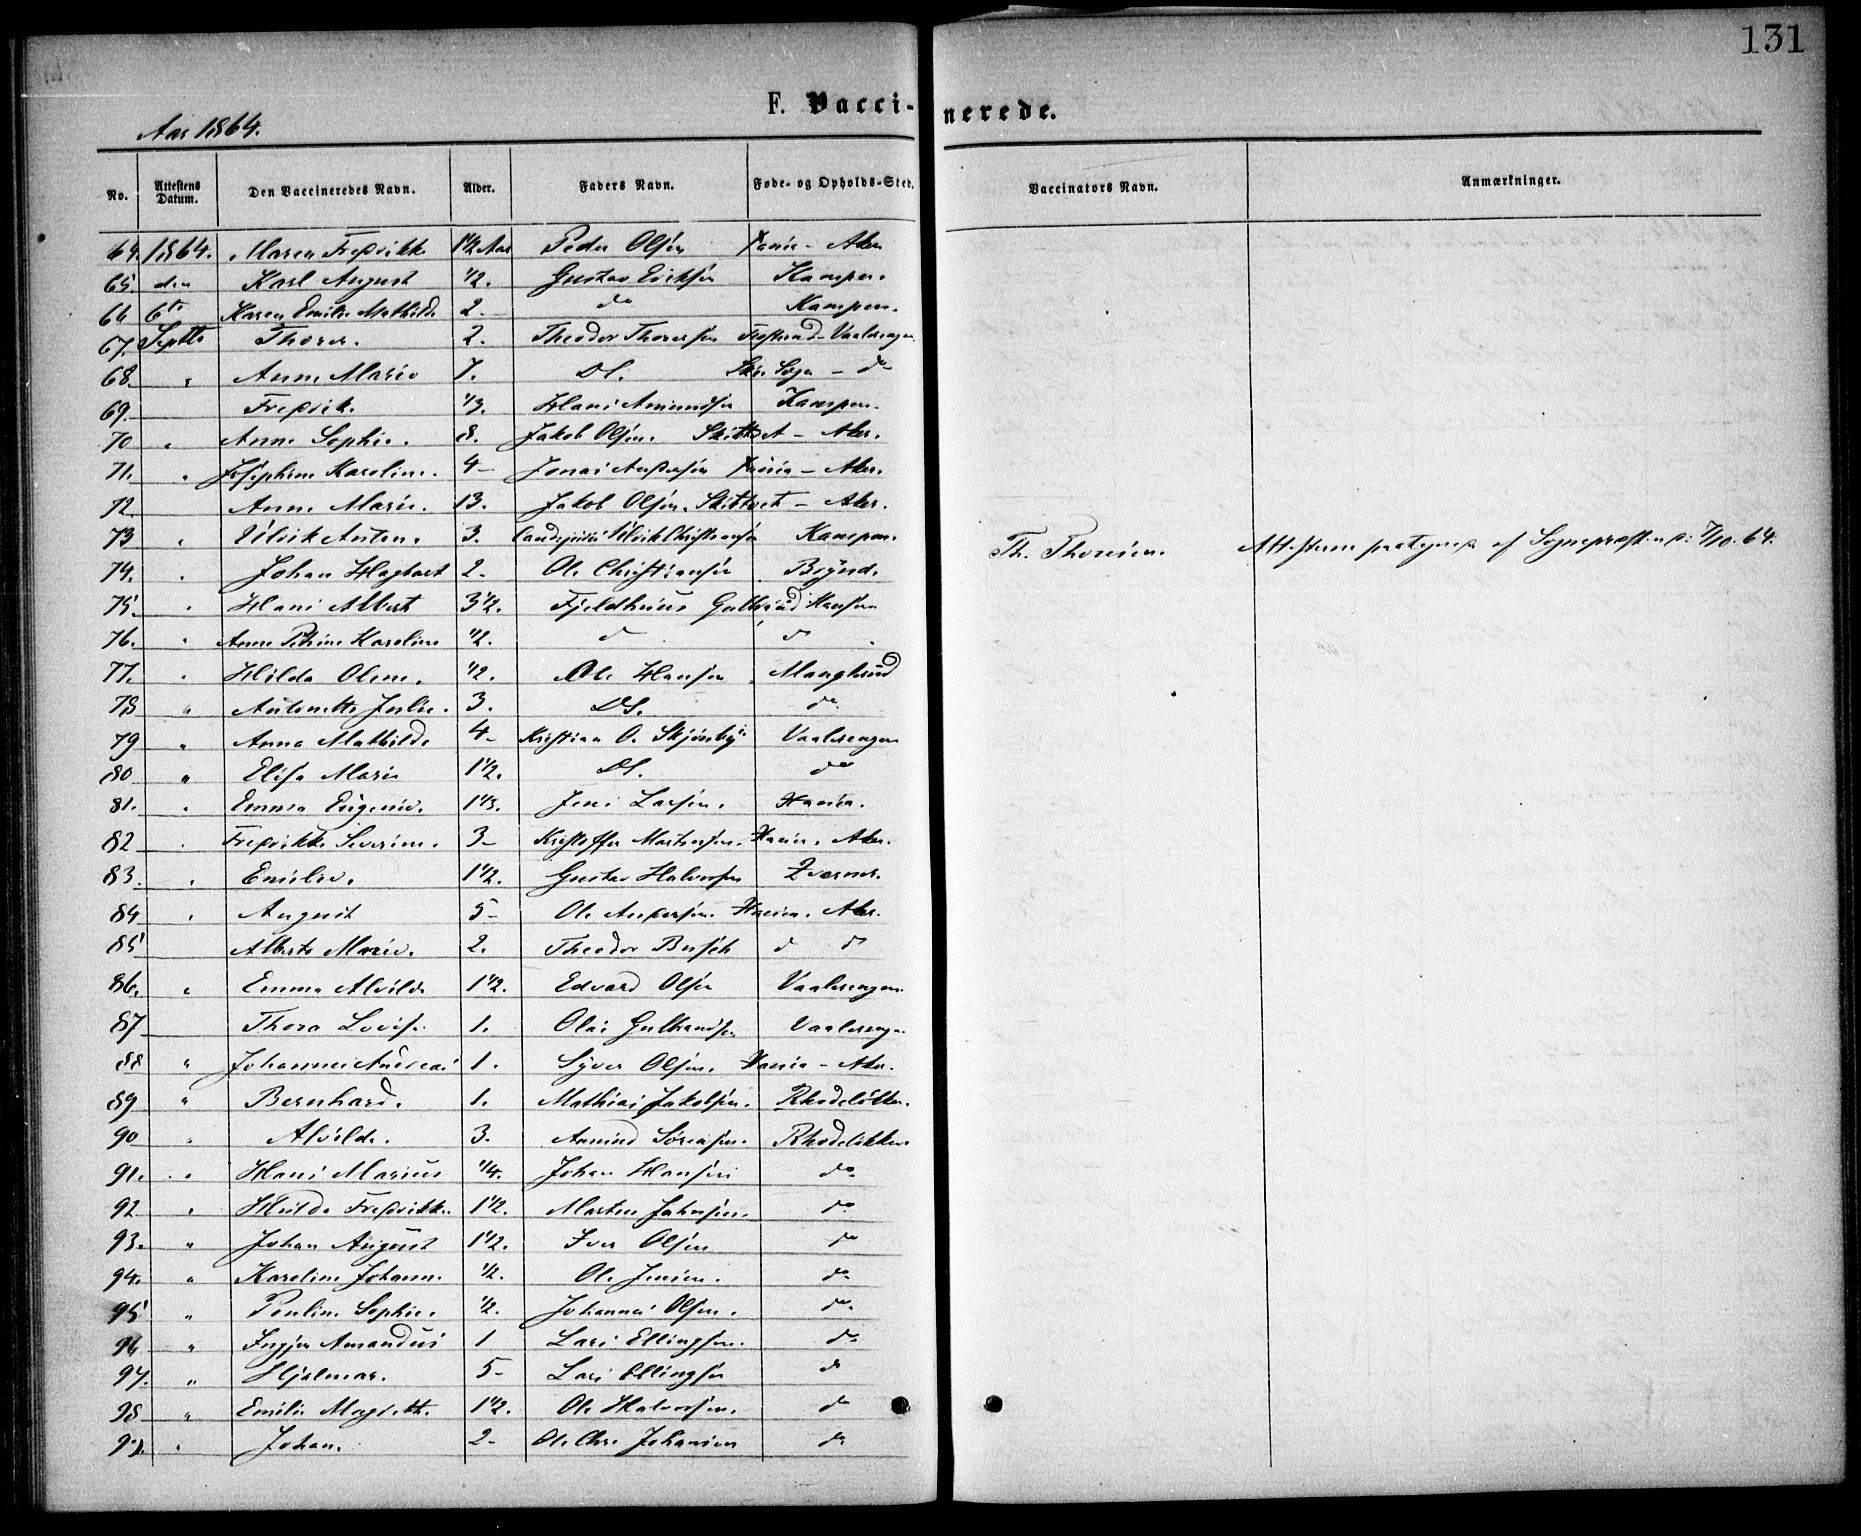 131
F. Vaccinerede.
Aar 1864.
No. Attestens Datum. Den Vaccineredes Navn. Alder. Faders Navn. Føde- og Opholds-Sted. Vaccinators Navn. Anmærkninger.
64. 1864. Maren Fredrikke 1 1/2 Aar Peder Olsen Xania - Aker
65. den Karl August 1/2. Gustav Eriksen Kampen.
66 6te Karen Emilie Mathilde 2 - do Kampen.
67. Septbr Thorer. 2. Theodor Thoresen Vaalerengen
68. " Anne Marie 7. Ds. Ski Sogn - do
69. Fredrik. 1/3. Hans Amundsen Kampen.
70 " Anne Sophie. 8. Jakob Olsen. Skibtvet - Aker.
71. " Josephine Karoline. 4 - Jonas Andersen Xania - Aker.
72 Anne Marie. 13. Jakob Olsen. Skibtvet - Aker.
73 " Ulrik Anton. 3. Ulrik Christiansen Kampen. Th. Thoresen. Attesterne paategnede af Sognepræsten d: 7/10. 64.
74. " Johan Hagbart 2 - Ole Christiansen Brynd.
75. " Hans Albert 3 1/2. Fjeldhuus Gulbrand Hansen
76. " Anne Petrine Karoline 1/2. d d
77. " Hilda Oline. 1/2. Ole Hansen Manglerud
78 " Antonette Julie. 3. Ds. do
79 " Anna Mathilde 4 - Kristian O. Skjønsby Vaalerengen
80 " Elisa Marie 1 1/2. Ds. do
81. " Emma Eugenie. 1 1/3. Jens Larsen. Xania.
82 " Fredrikke Severine. 3 - Kristoffer Mortensen. Xania. Aker.
83. " Emilie. 1 1/2. Gustav Halvorsen Everner.
84 " August 5 - Ole Andersen. Xania. Aker.
85 Alberte Marie. 2. Theodor Busch d d
86. " Emma Alvilde 1 1/2. Edvard Olsen Vaalerengen
87 Thora Lovise. 1. Olai Gulbrandsen Vaalerengen
88 " Johannes Andreas 1. Syver Olsen. Xania - Aker.
89 " Bernhard. 1. Mathias Jakobsen. Rhodeløkken.
90 " Alvilde. 3. Amund Sørensen. Rhodeløkken
91. " Hans Marius 1/4. Johan Hansen do
92 " Hulda Fredrikke. 1 1/2. Morten Johnsen. do
93. " Johan August 1 1/2. Iver Olsen do
94. " Karoline Johanne. 1/2. Ole Jensen. do
95 " Pauline Sophie. 1/2. Johannes Olsen. do
96 " Amandus 1 Lars Ellingsen. do
97. " Hjalmar. 5 - Lars Ellingsen do
98 " Emilie Magdeth. 1 1/2. Ole Halvorsen. do
99. " Johan. 2 - Ole Chr. Johansen do